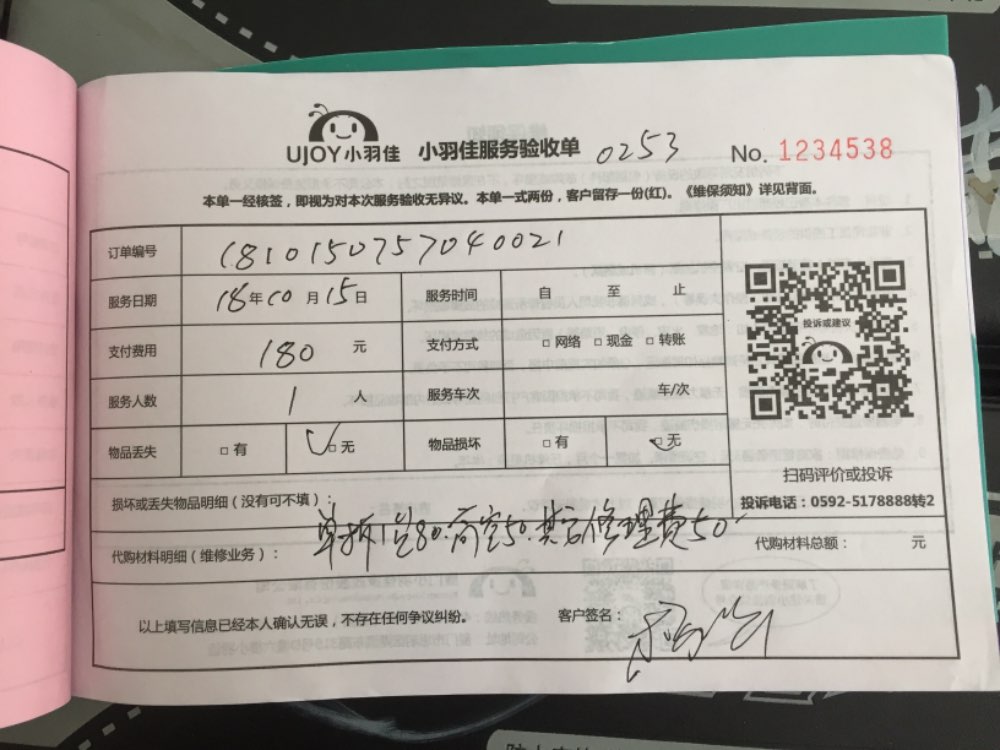 UJOY小羽佳 小羽佳服务验收单 0253 No. 1234538
本单一经核签，即视为对本次服务验收无异议。本单一式两份，客户留存一份(红)。《维保须知》详见背面。
订单编号 181015075704 0021
服务日期 18年10月15日 服务时间 自 至 止
支付费用 180 元 支付方式 □网络 □现金 □转账
服务人数 1 人 服务车次 车/次
物品丢失 □有 □无 物品损坏 □有 □无
投诉或建议
扫码评价或投诉
投诉电话：0592-5178888转2
损坏或丢失物品明细（没有可不填）：
单拆1台80.高空50.其它修理费50
代购材料明细（维修业务）： 代购材料总额： 元
以上填写信息已经本人确认无误，不存在任何争议纠纷。 客户签名：